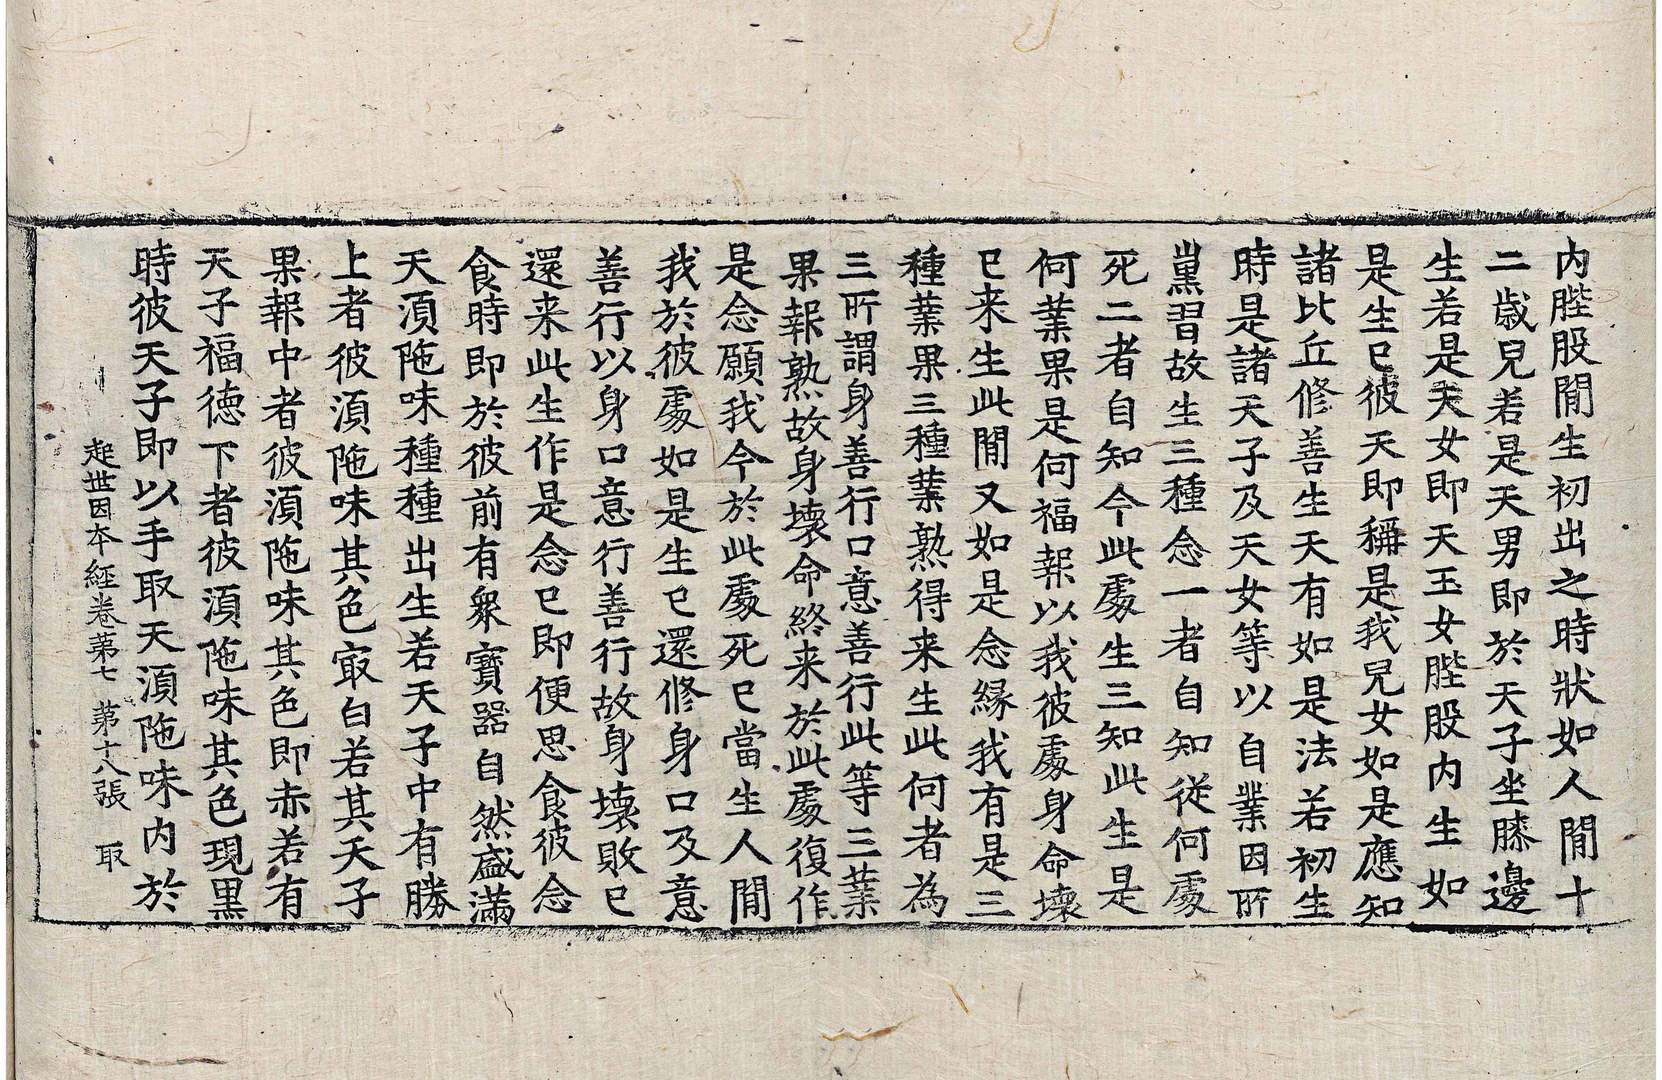 内䏶股閒生初出之時狀如人閒十
二歲兒若是天男即於天子坐膝邊
生若是天女即天玉女䏶股内生如
是生已彼天即稱是我兒女如是應知
諸比丘修善生天有如是法若初生
時是諸天子及天女等以自業因所
薰習故生三種念一者自知從何處
死二者自知今此處生三知此生是
何業果是何福報以我彼處身命壞
已来生此閒又如是念緣我有是三
種業果三種業熟得来生此何者為
三所謂身善行口意善行此等三業
果報熟故身壞命終来於此處復作
是念願我今於此處死已當生人閒
我於彼處如是生已還修身口及意
善行以身口意行善行故身壞敗已
還来此生作是念已即便思食彼念
食時即於彼前有衆寶器自然盛滿
天湏陁味種種出生若天子中有勝
上者彼湏陁味其色㝡白若其天子
果報中者彼湏陁味其色即赤若有
天子福德下者彼湏陁味其色現黒
時彼天子即以手取天湏陁味内於
起世因本經卷第七 第十八張 取